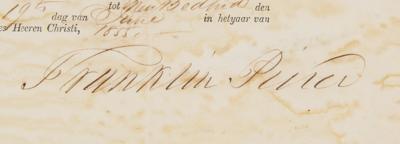 tot New Bedford den
19th dag van June in hetyaar van
Heeren Christi, 1855
Franklin Pierce